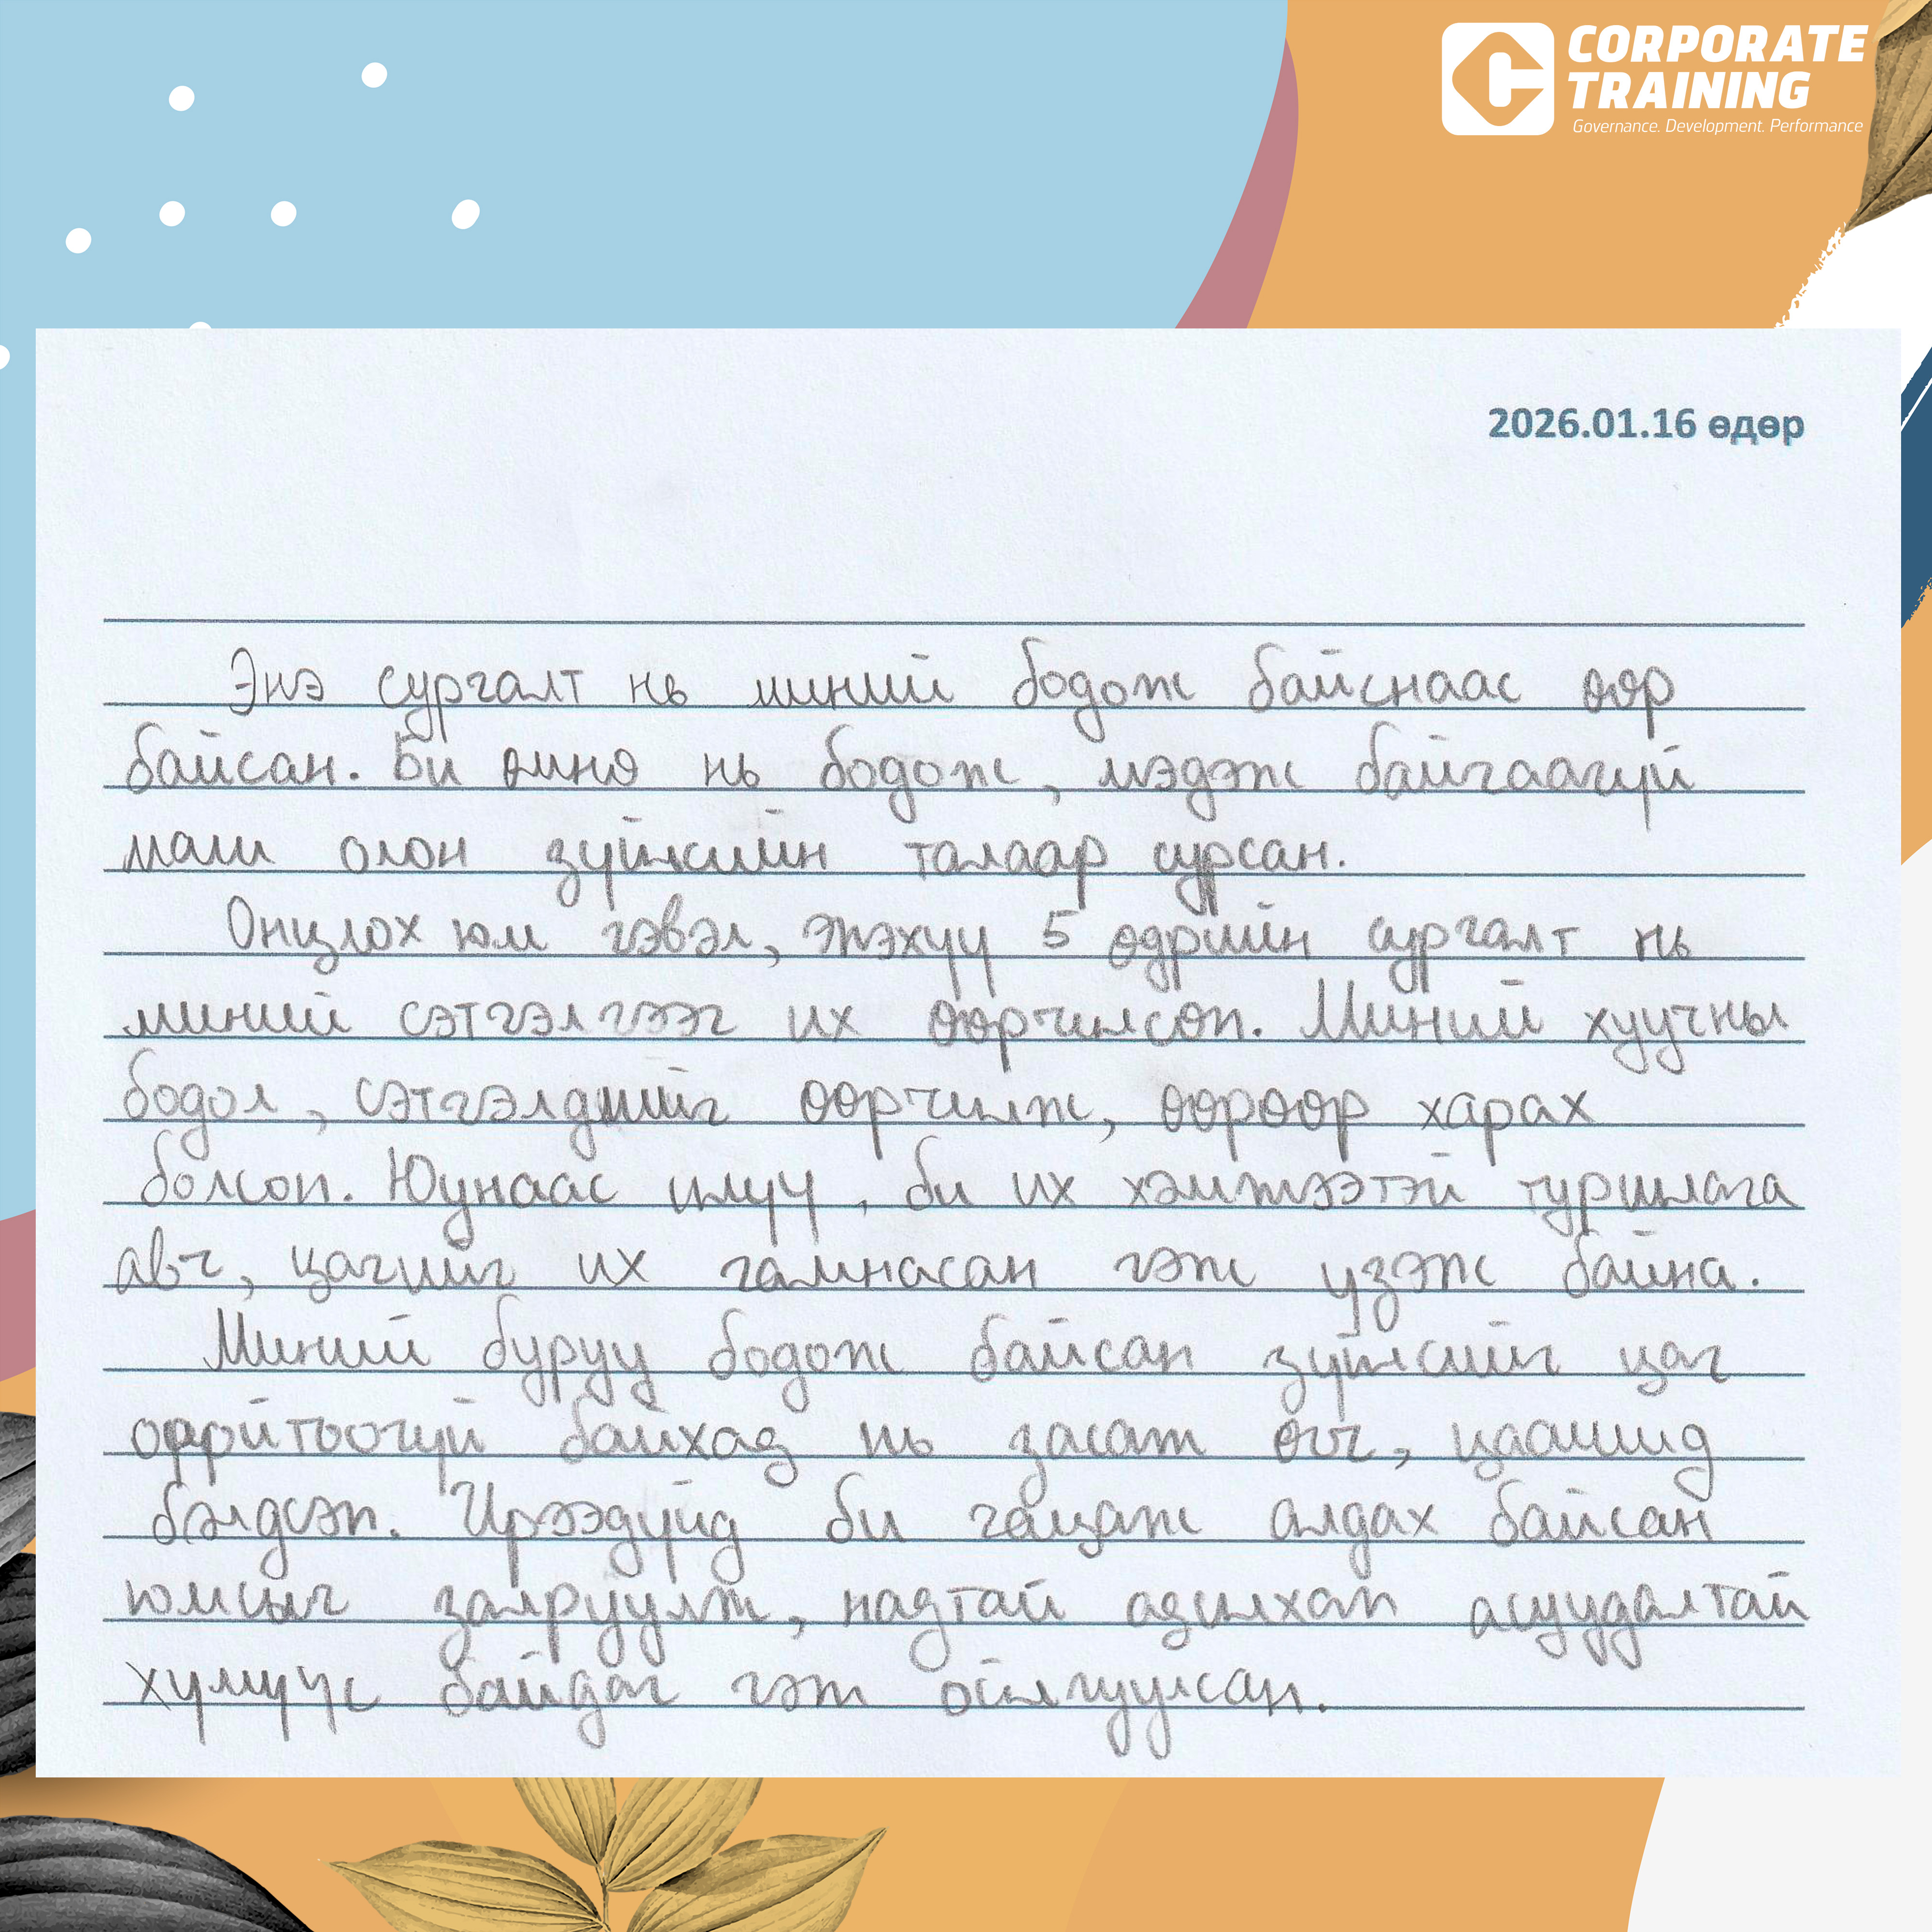 CORPORATE
TRAINING
Governance. Development. Performance
2026.01.16 өдөр
Энэ сургалт нь миний бодож байснаас өөр
байсан. Би өмнө нь бодож, мэдэж байгаагүй
маш олон зүйлсийн талаар сурсан.
Онцлох юм гэвэл, жэхүү 5 өдрийн сургалт нь
миний сэтгэлгээг их өөрчилсөн. Миний хуучны
бодол, сэтгэлдмийг өөрчилж, өөрөөр харах
болсон. Юунаас илүү, би их хэмжээтэй туршлага
авч, цагийг их гамнасан гэж үзэж байна.
Миний буруу бодож байсан зүйлсийг цаг
орройтоогүй байхад нь засаж өгч, цаашид
бэлдсэн. Ирээдүйд би гацаж алдах байсан
юмсыг залруулж, надтай адилхан асуудалтай
хүмүүс байдаг гэж ойлгуулсан.